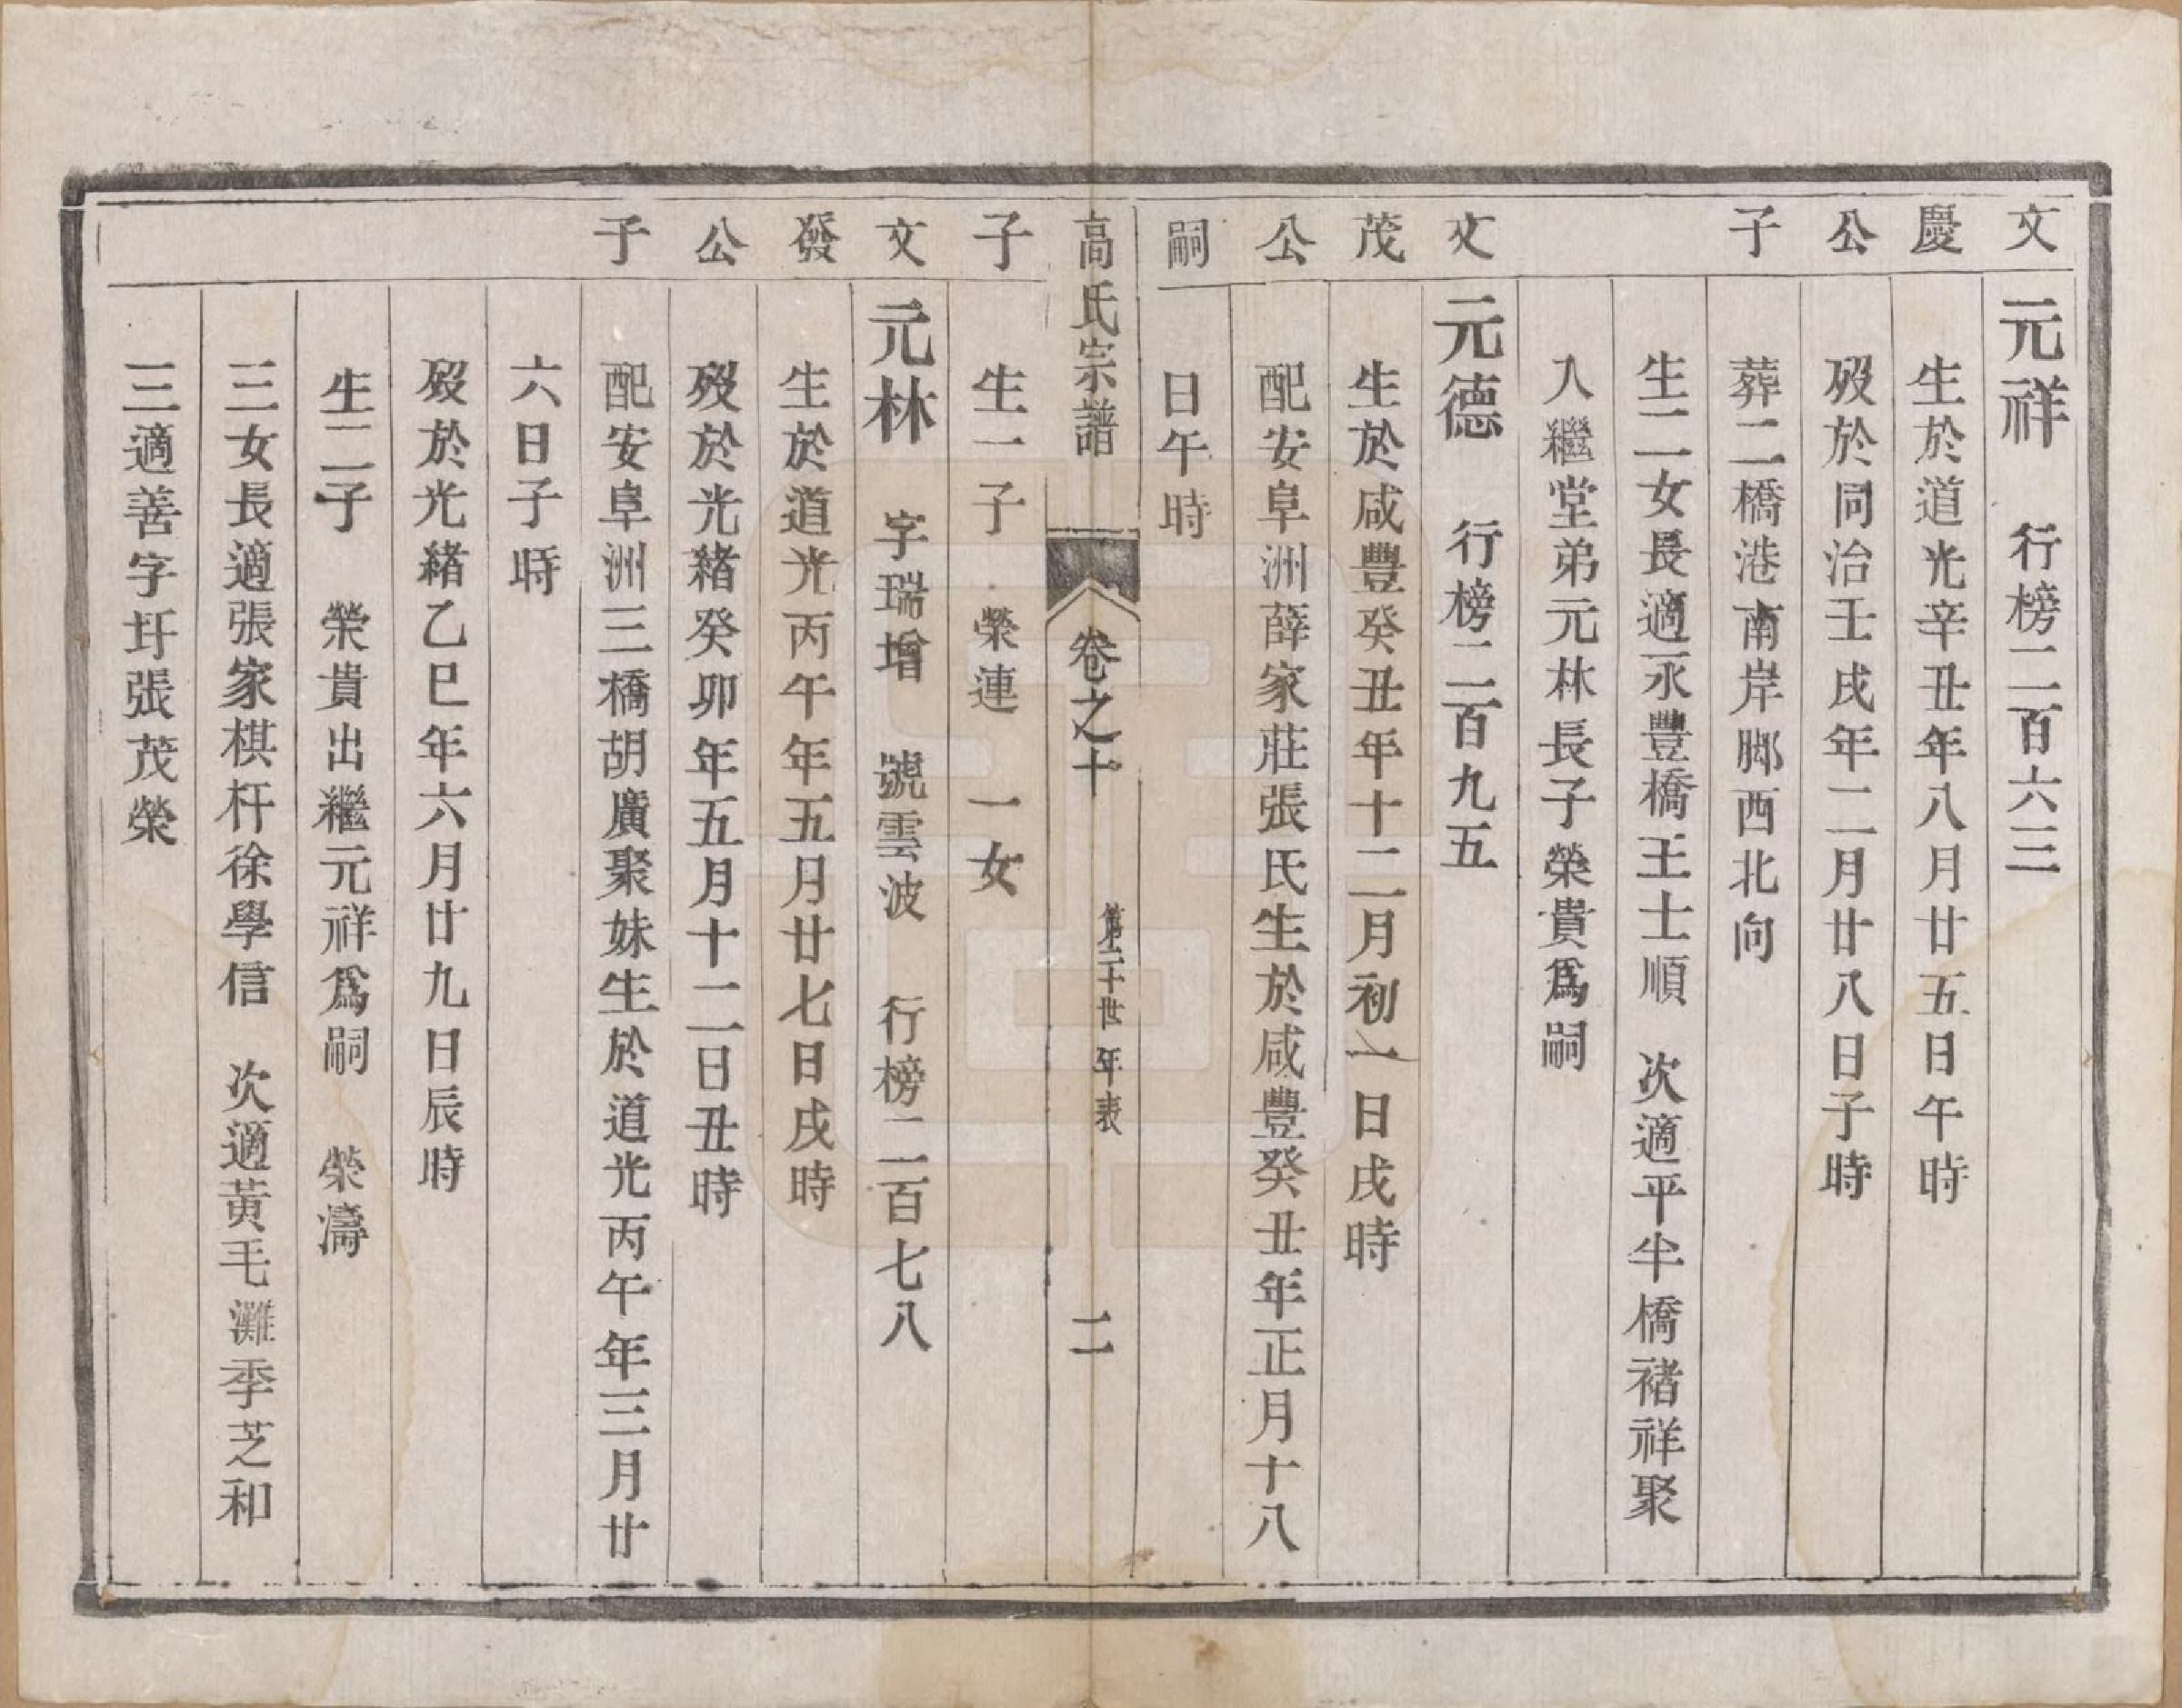 文 元祥 行榜二百六三
慶 生於道光辛丑年八月廿五日午時
公 歿於同治壬戌年二月廿八日子時
子 葬二橋港南岸腳西北向
生二女長適永豐橋王士順 次適平半橋褚祥聚
入繼堂弟元林長子榮貴爲嗣
文 元德 行榜二百九五
茂 生於咸豐癸丑年十二月初一日戌時
公 配安阜洲薛家莊張氏生於咸豐癸丑年正月十八
嗣 日午時
高氏宗譜 卷之十 第二十世年表 二
子 生一子 榮連 一女
文 元林 字瑞增 號雲波 行榜二百七八
發 生於道光丙午年五月廿七日戌時
公 歿於光緒癸卯年五月十二日丑時
子 配安阜洲三橋胡廣聚妹生於道光丙午年三月廿
六日子時
歿於光緒乙巳年六月廿九日辰時
生二子 榮貴出繼元祥爲嗣 榮濤
三女長適張家棋杆徐學信 次適黃毛灘季芝和
三適善字圩張茂榮